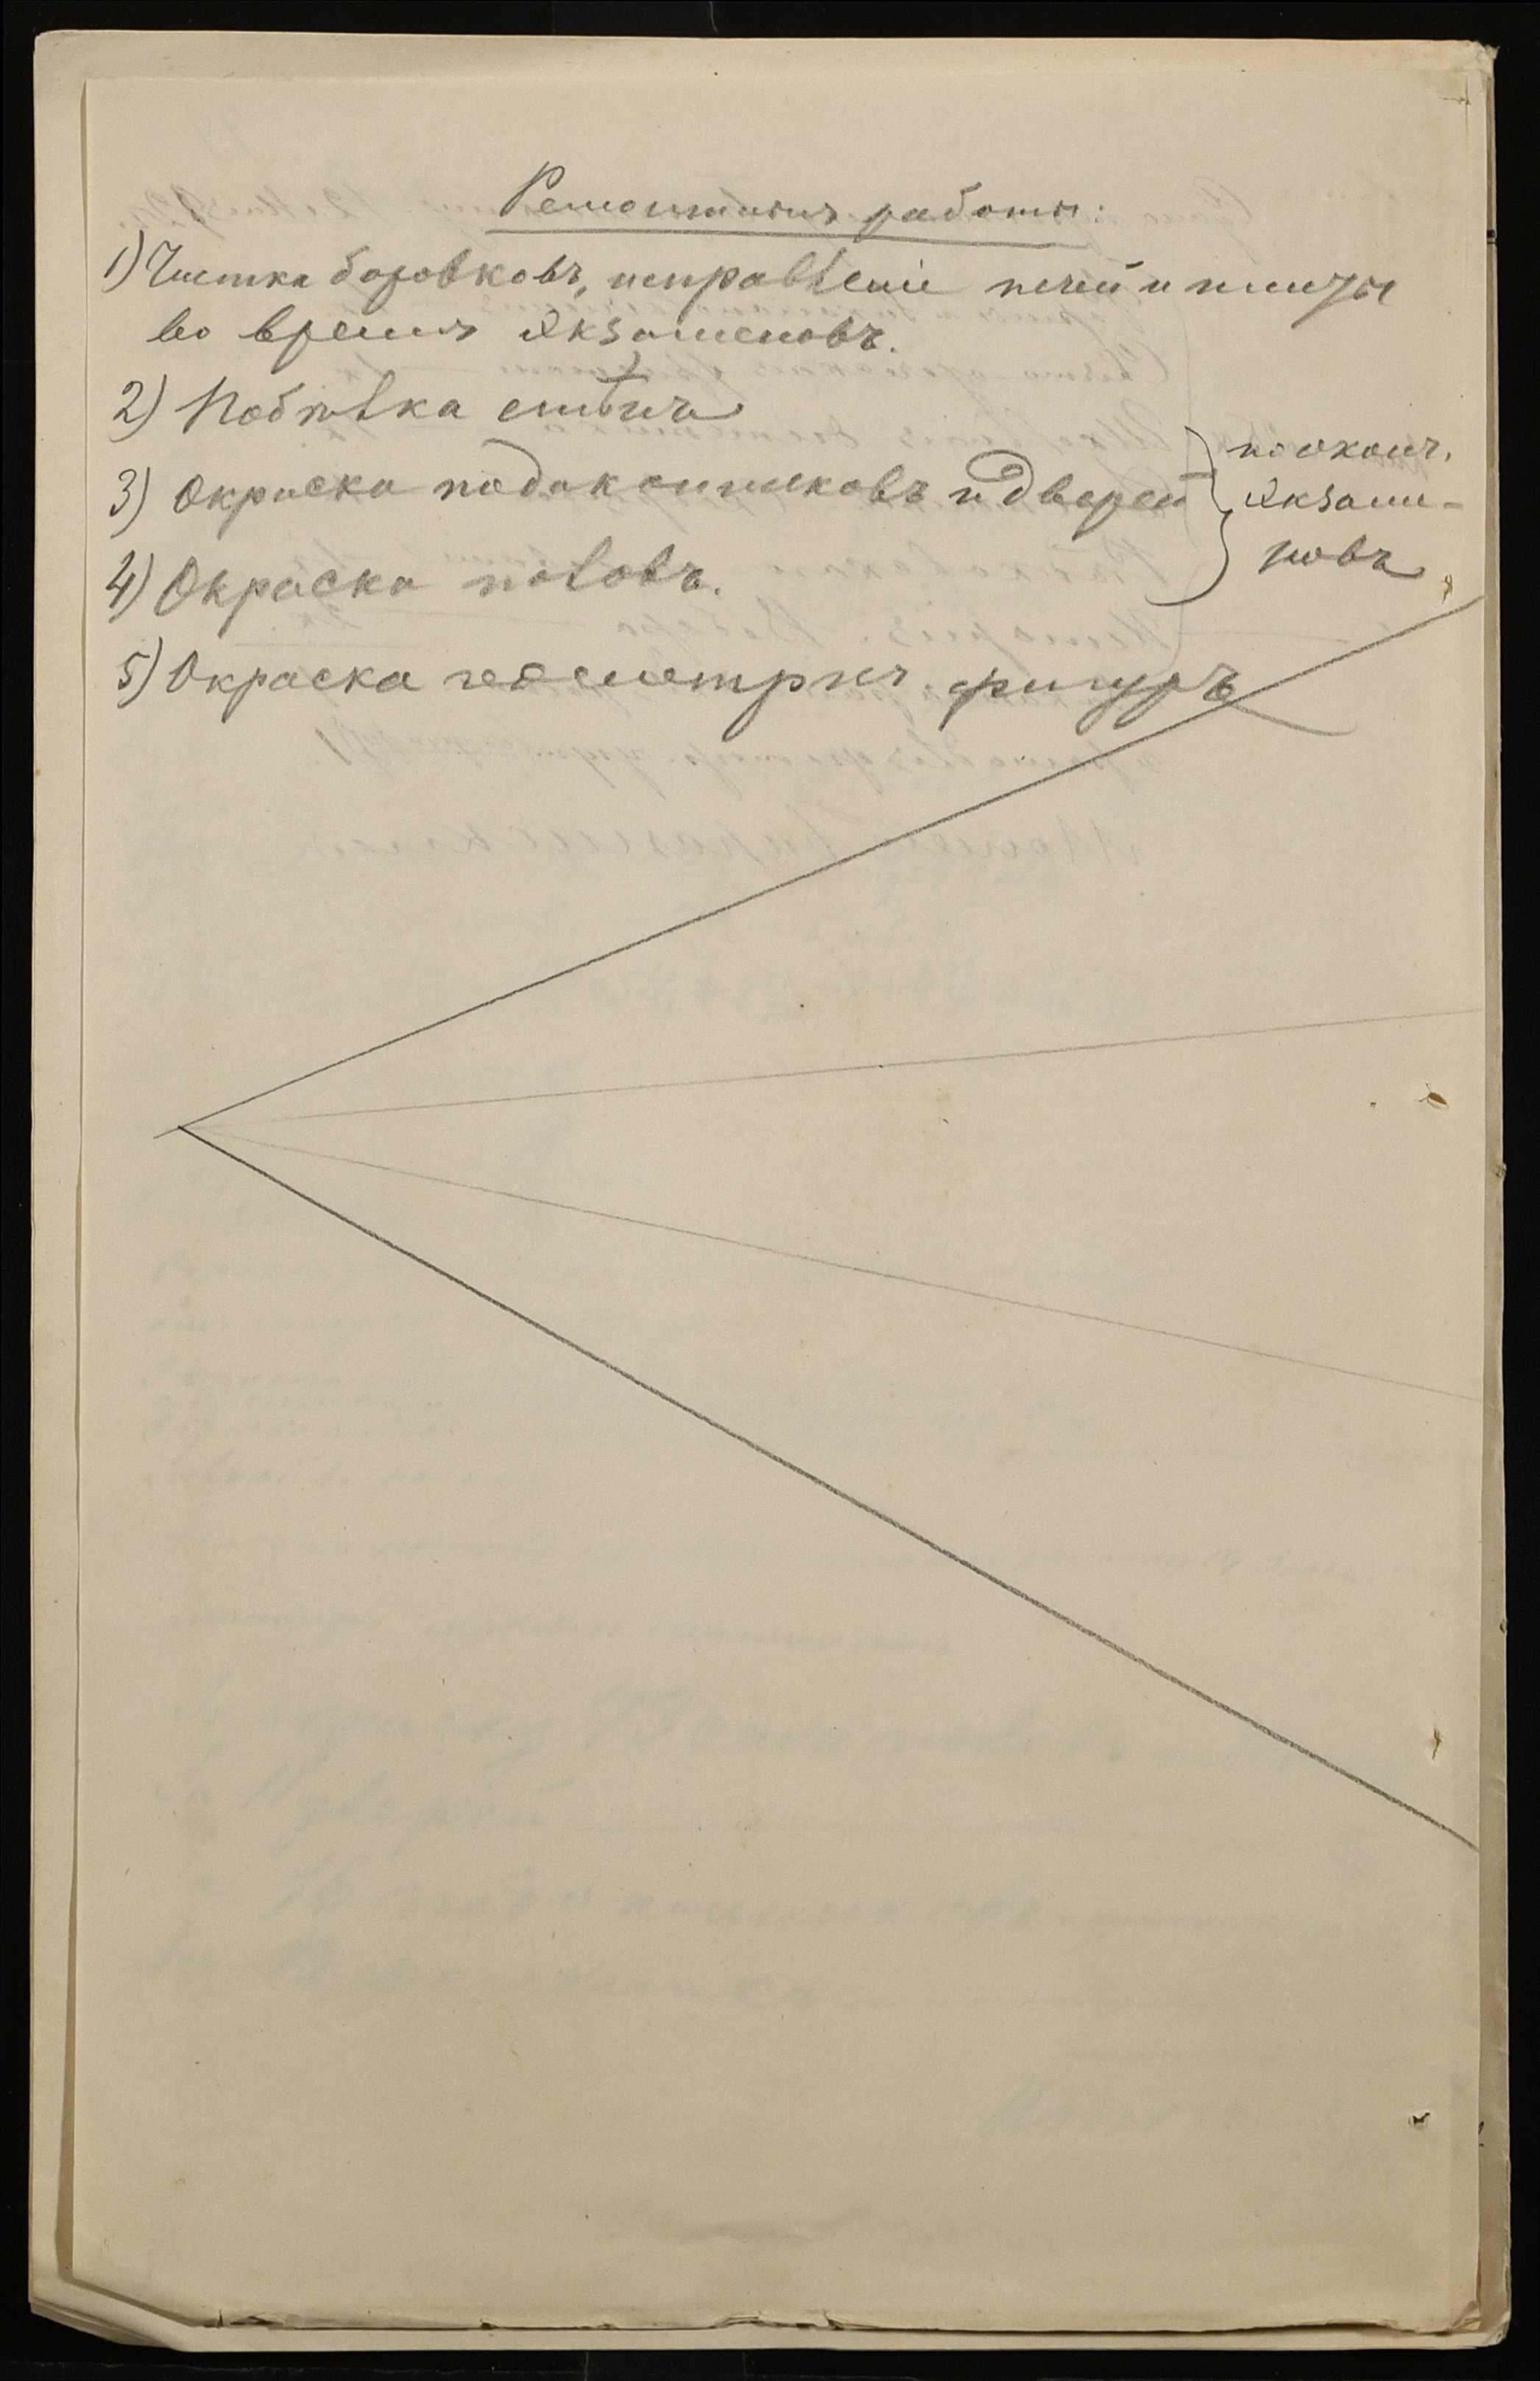 Ремонтныя работы:
1) Чистка боровковъ, исправленіе печей и плиты
во время экзаменовъ.
2) Побѣлка стѣнъ
3) Окраска подоконниковъ и дверей
4) Окраска половъ.
по оконч.
экзаме-
новъ
5) Окраска геометрич. фигуръ